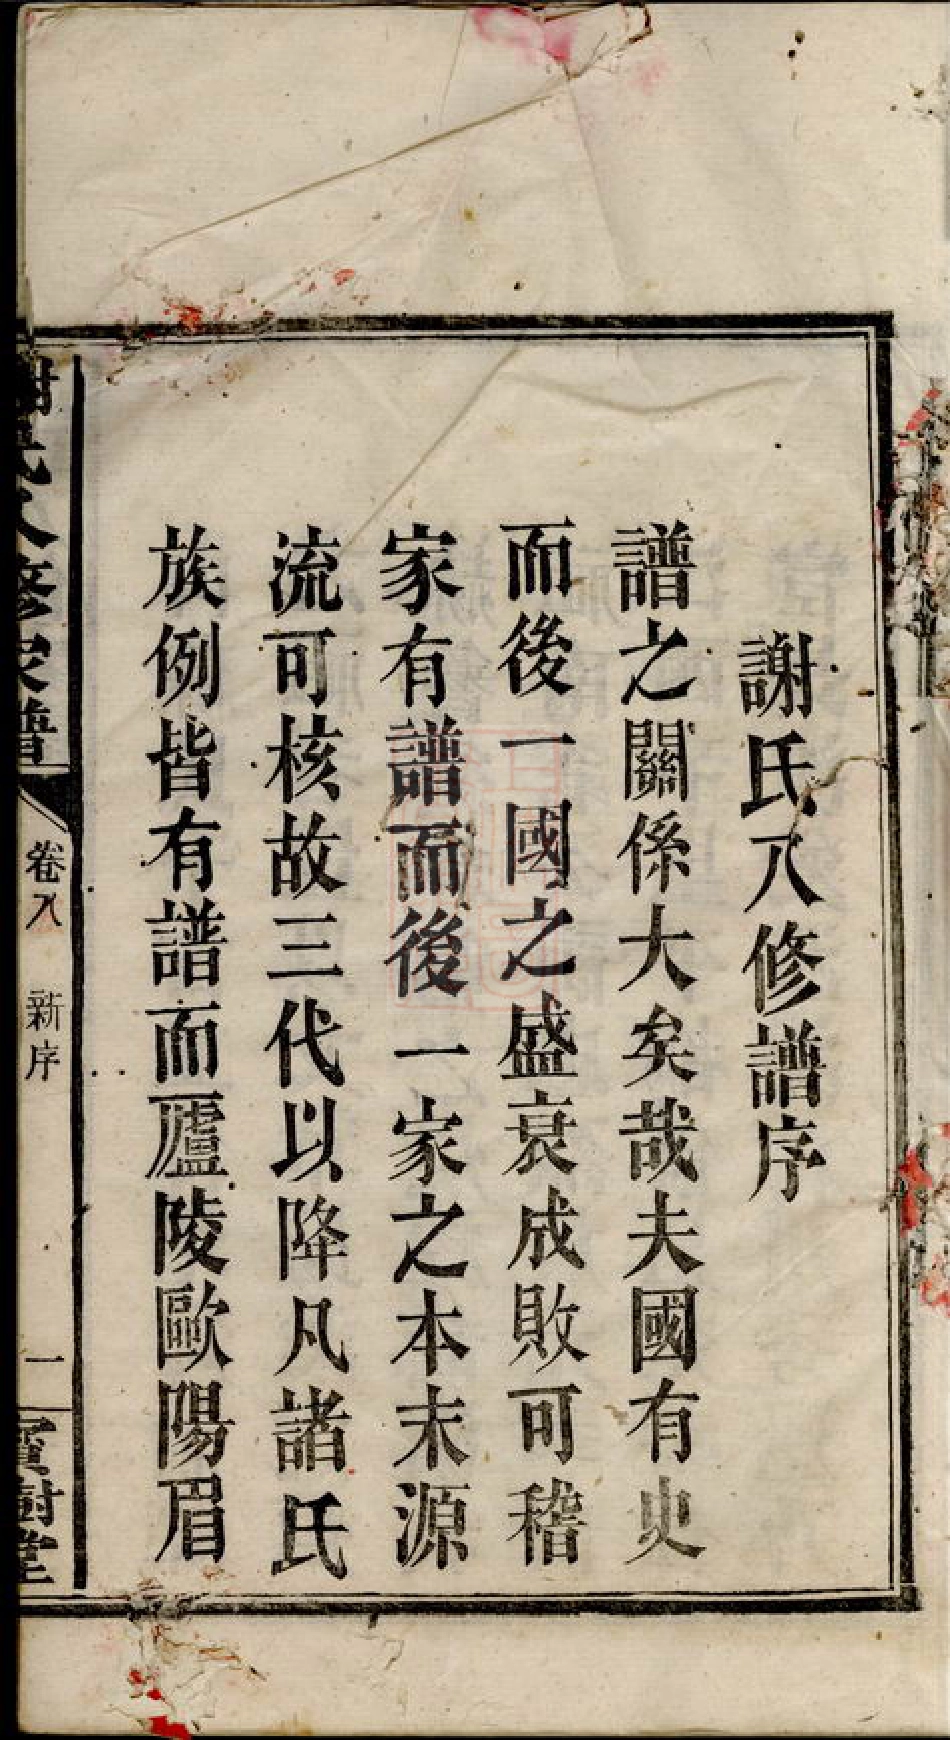 謝氏八修譜序
譜之關係大矣哉夫國有史
而後一國之盛衰成敗可稽
家有譜而後一家之本末源
流可核故三代以降凡諸氏
族例皆有譜而廬陵歐陽眉
謝氏八修家譜
卷八
新序
一
寶樹堂